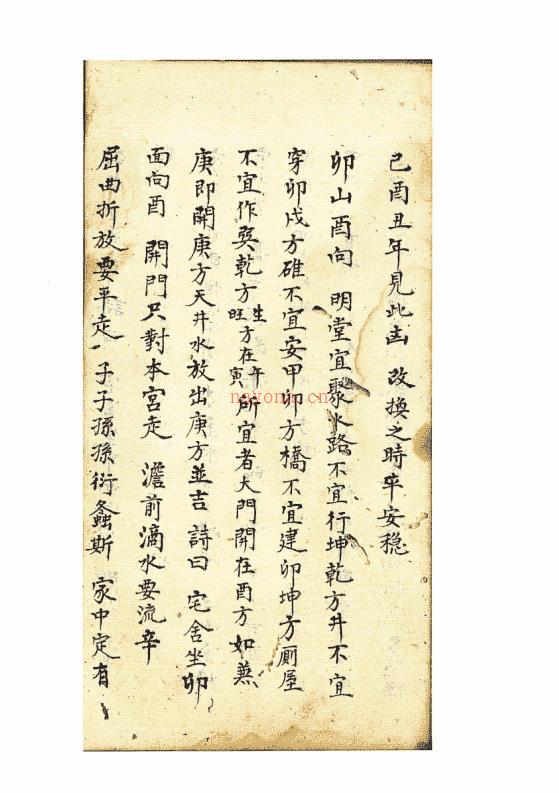 己酉丑年見此凶 改換之時平安穩
卯山酉向 明堂宜聚水路不宜行坤乾方井不宜
穿卯戌方碓不宜安甲卯方橋不宜建卯坤方厠屋
不宜作巽乾方生旺方在午寅所宜者大門開在酉方如無
庚即開庚方天井水放出庚方並吉 詩曰 宅舍坐卯
面向酉 開門只對本宮走 簷前滴水要流辛
屈曲折放要平走 子子孫孫衍螽斯 家中定有
nayona.cn